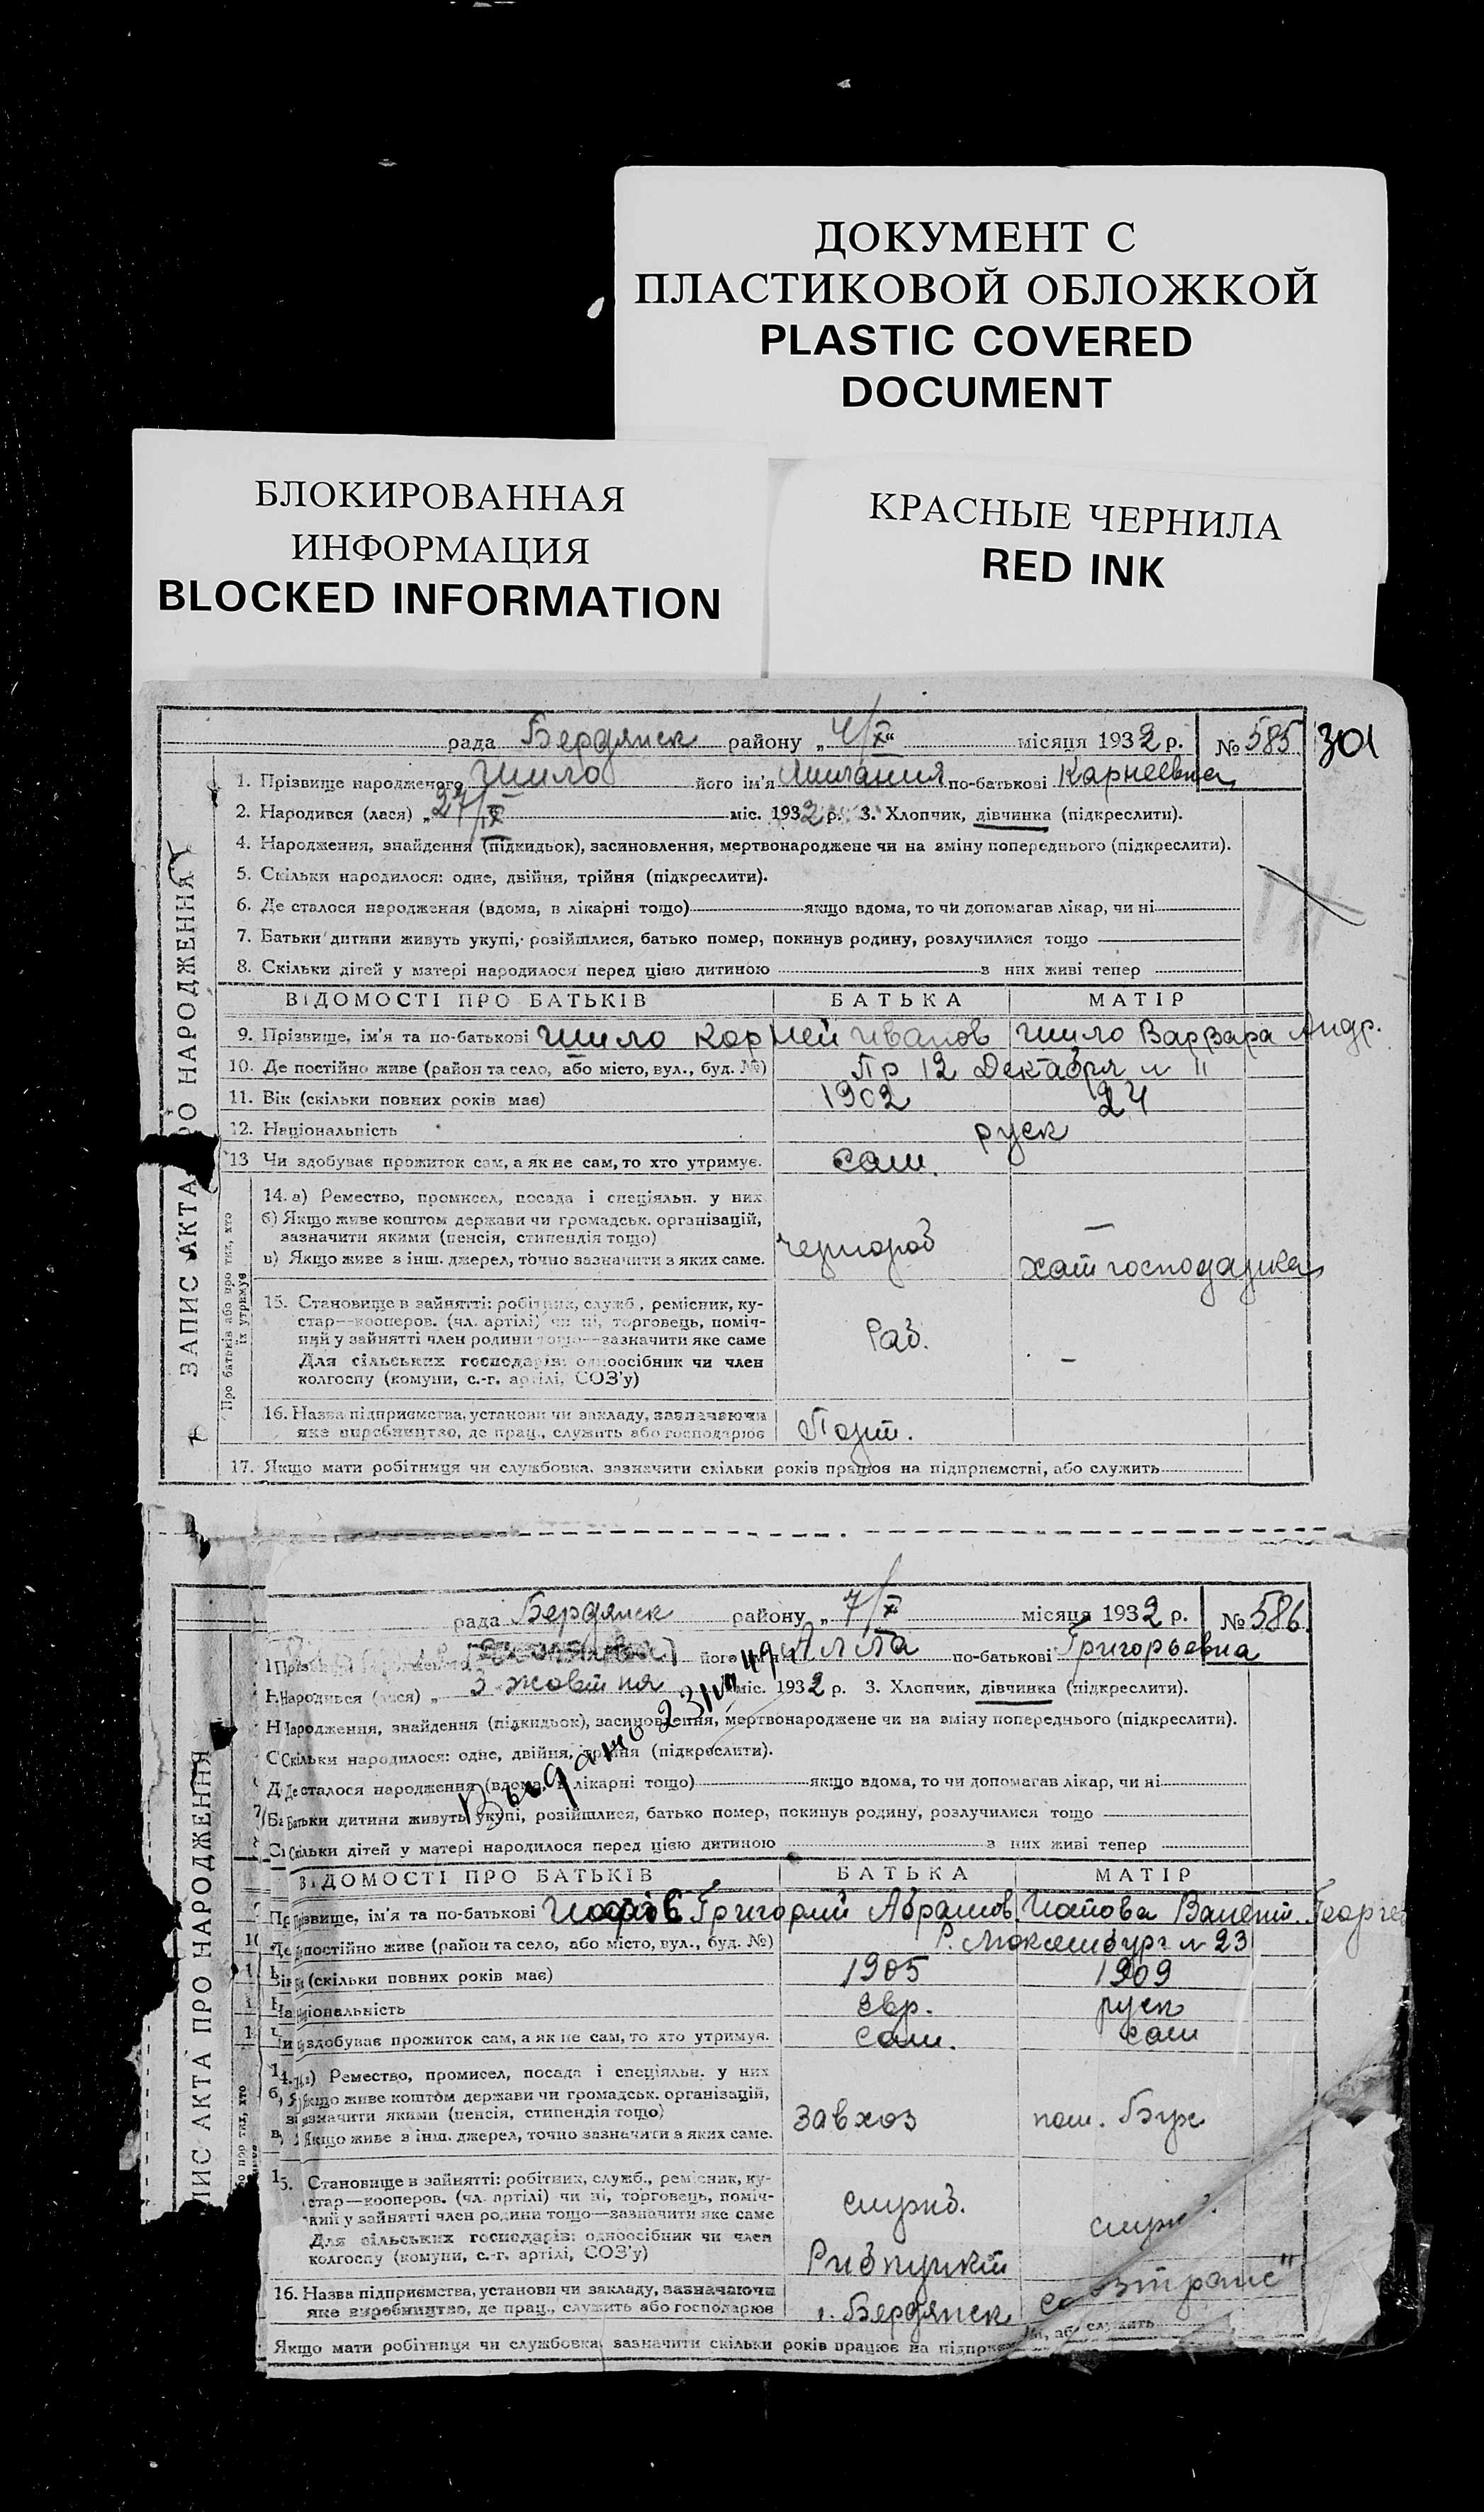 ДОКУМЕНТ С
ПЛАСТИКОВОЙ ОБЛОЖКОЙ
PLASTIC COVERED
DOCUMENT
БЛОКИРОВАННАЯ
ИНФОРМАЦИЯ
BLOCKED INFORMATION
КРАСНЫЕ ЧЕРНИЛА
RED INK
рада Бердянск району „4/X“ місяця 1932 р. № 585 301
1. Прізвище народженого Шило його ім'я по-батькові Карнеевна
2. Народився (лася) „27/IX міс. 1932 р. 3. Хлопчик, дівчинка (підкреслити).
4. Народження, знайдення (підкидьок), засиновлення, мертвонароджене чи на зміну попереднього (підкреслити).
5. Скільки народилося: одне, двійня, трійня (підкреслити).
6. Де сталося народження (вдома, в лікарні тощо) якщо вдома, то чи допомагав лікар, чи ні
7. Батьки дитини живуть укупі, розійшлися, батько помер, покинув родину, розлучилися тощо
8. Скільки дітей у матері народилося перед цією дитиною з них живі тепер
ЗАПИС АКТА ПРО НАРОДЖЕННЯ
ВІДОМОСТІ ПРО БАТЬКІВ БАТЬКА МАТІР
9. Прізвище, ім'я та по-батькові Шило Корней Иванов Шило Варвара Андр.
10. Де постійно живе (район та село, або місто, вул., буд. №) Пр 12 Декабря н 11
11. Вік (скільки повних років має) 1902 24
12. Національність руск
13 Чи здобуває прожиток сам, а як не сам, то хто утримує. сам.
Про батьків або про тих, хто їх утримує
14. а) Ремество, промисел, посада і спеціяльн. у них
б) Якщо живе коштом держави чи громадськ. організацій,
зазначити якими (пенсія, стипендія тощо)
в) Якщо живе з інш. джерел, точно зазначити з яких саме. чернороб — хат господарка
15. Становище в зайнятті: робітник, служб., ремісник, ку-
стар—кооперов. (чл. артілі) чи ні, торговець, поміч-
ний у зайнятті член родини тощо—зазначити яке саме Раб.
Для сільських господарів: одноосібник чи член –
колгоспу (комуни, с.-г. артілі, СОЗ'у)
16. Назва підприємства, установи чи закладу, зазначаючи
яке виробництво, де прац., служить або господарює Порт.
17. Якщо мати робітниця чи службовка, зазначити скільки років працює на підприємстві, або служить
рада Бердянск району „7/X місяця 1932 р. № 586
його ім'я Алла по-батькові Григорьевна
Народився (лася) „3 жовтня міс. 1932 р. 3. Хлопчик, дівчинка (підкреслити).
Народження, знайдення (підкидьок), засиновлення, мертвонароджене чи на зміну попереднього (підкреслити).
Скільки народилося: одне, двійня, трійня (підкреслити).
Де сталося народження (вдома, в лікарні тощо) якщо вдома, то чи допомагав лікар, чи ні
Батьки дитини живуть укупі, розійшлися, батько помер, покинув родину, розлучилися тощо
Скільки дітей у матері народилося перед цією дитиною з них живі тепер
ПИС АКТА ПРО НАРОДЖЕННЯ
ВІДОМОСТІ ПРО БАТЬКІВ БАТЬКА МАТІР
Прізвище, ім'я та по-батькові Григорий Абрамов
постійно живе (район та село, або місто, вул., буд. №) Р. Люксембург н 23
(скільки повних років має) 1905 1909
Національність евр. руск
здобуває прожиток сам, а як не сам, то хто утримує. сам. сам
14. Ремество, промисел, посада і спеціяльн. у них
Якщо живе коштом держави чи громадськ. організацій,
зазначити якими (пенсія, стипендія тощо)
Якщо живе з інш. джерел, точно зазначити з яких саме. завхоз пом. Бух
15. Становище в зайнятті: робітник, служб., ремісник, ку-
стар—кооперов. (чл. артілі) чи ні, торговець, поміч-
ний у зайнятті член родини тощо—зазначити яке саме служб.
Для сільських господарів: одноосібник чи член
колгоспу (комуни, с.-г. артілі, СОЗ'у)
16. Назва підприємства, установи чи закладу, зазначаючи
яке виробництво, де прац., служить або господарює г. Бердянск
Якщо мати робітниця чи службовка, зазначити скільки років працює на підприєм або служить